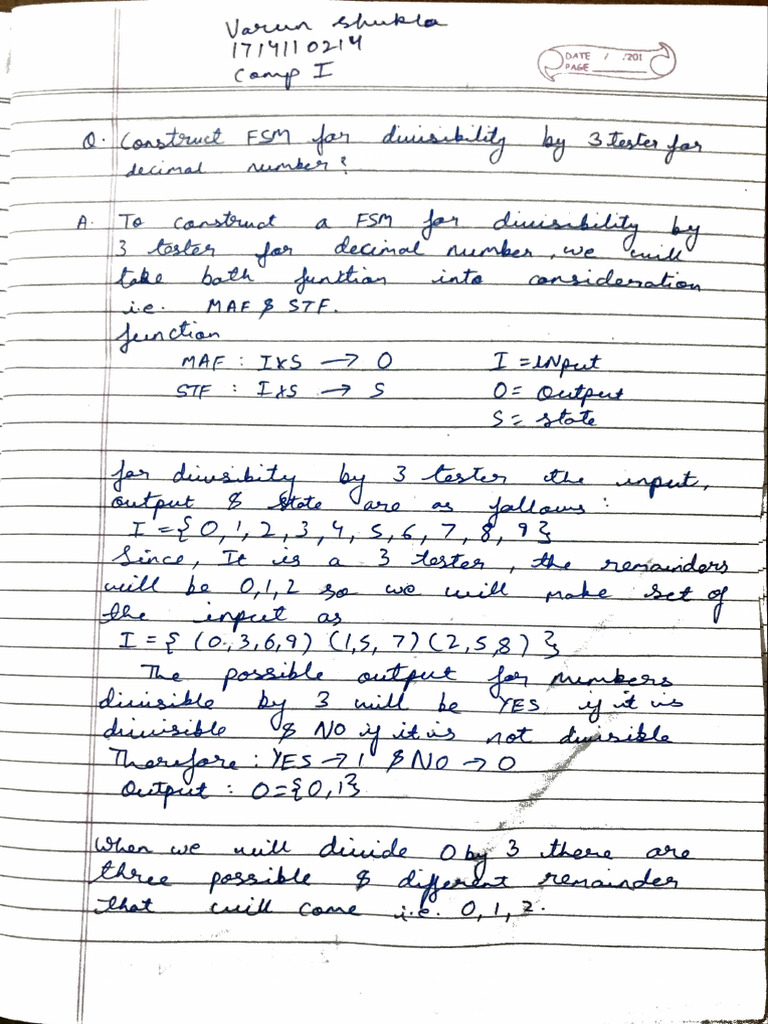 Varun Shukla
1714110214
Comp I
DATE / /201
PAGE
Q. Construct FSM for divisibility by 3 tester for
decimal number?
A. To construct a FSM for divisibility by
3 tester for decimal number, we will
take both function into consideration
i.e. MAF & STF.
function
MAF : I×S → O I = INput
STF : I×S → S O = Output
S = State
for divisibity by 3 tester the input,
output & state are as follows :
I = { 0, 1, 2, 3, 4, 5, 6, 7, 8, 9 }
Since, It is a 3 tester, the remainders
will be 0, 1, 2 so we will make set of
the input as
I = { (0, 3, 6, 9) (1, 5, 7) (2, 5, 8) }
The possible output for numbers
divisible by 3 will be YES if it is
divisible & NO if it is not divisible
Therefore : YES → 1 & NO → 0
Output : O = {0, 1}
When we will divide 0 by 3 there are
three possible & different remainder
that will come i.e. 0, 1, 2.